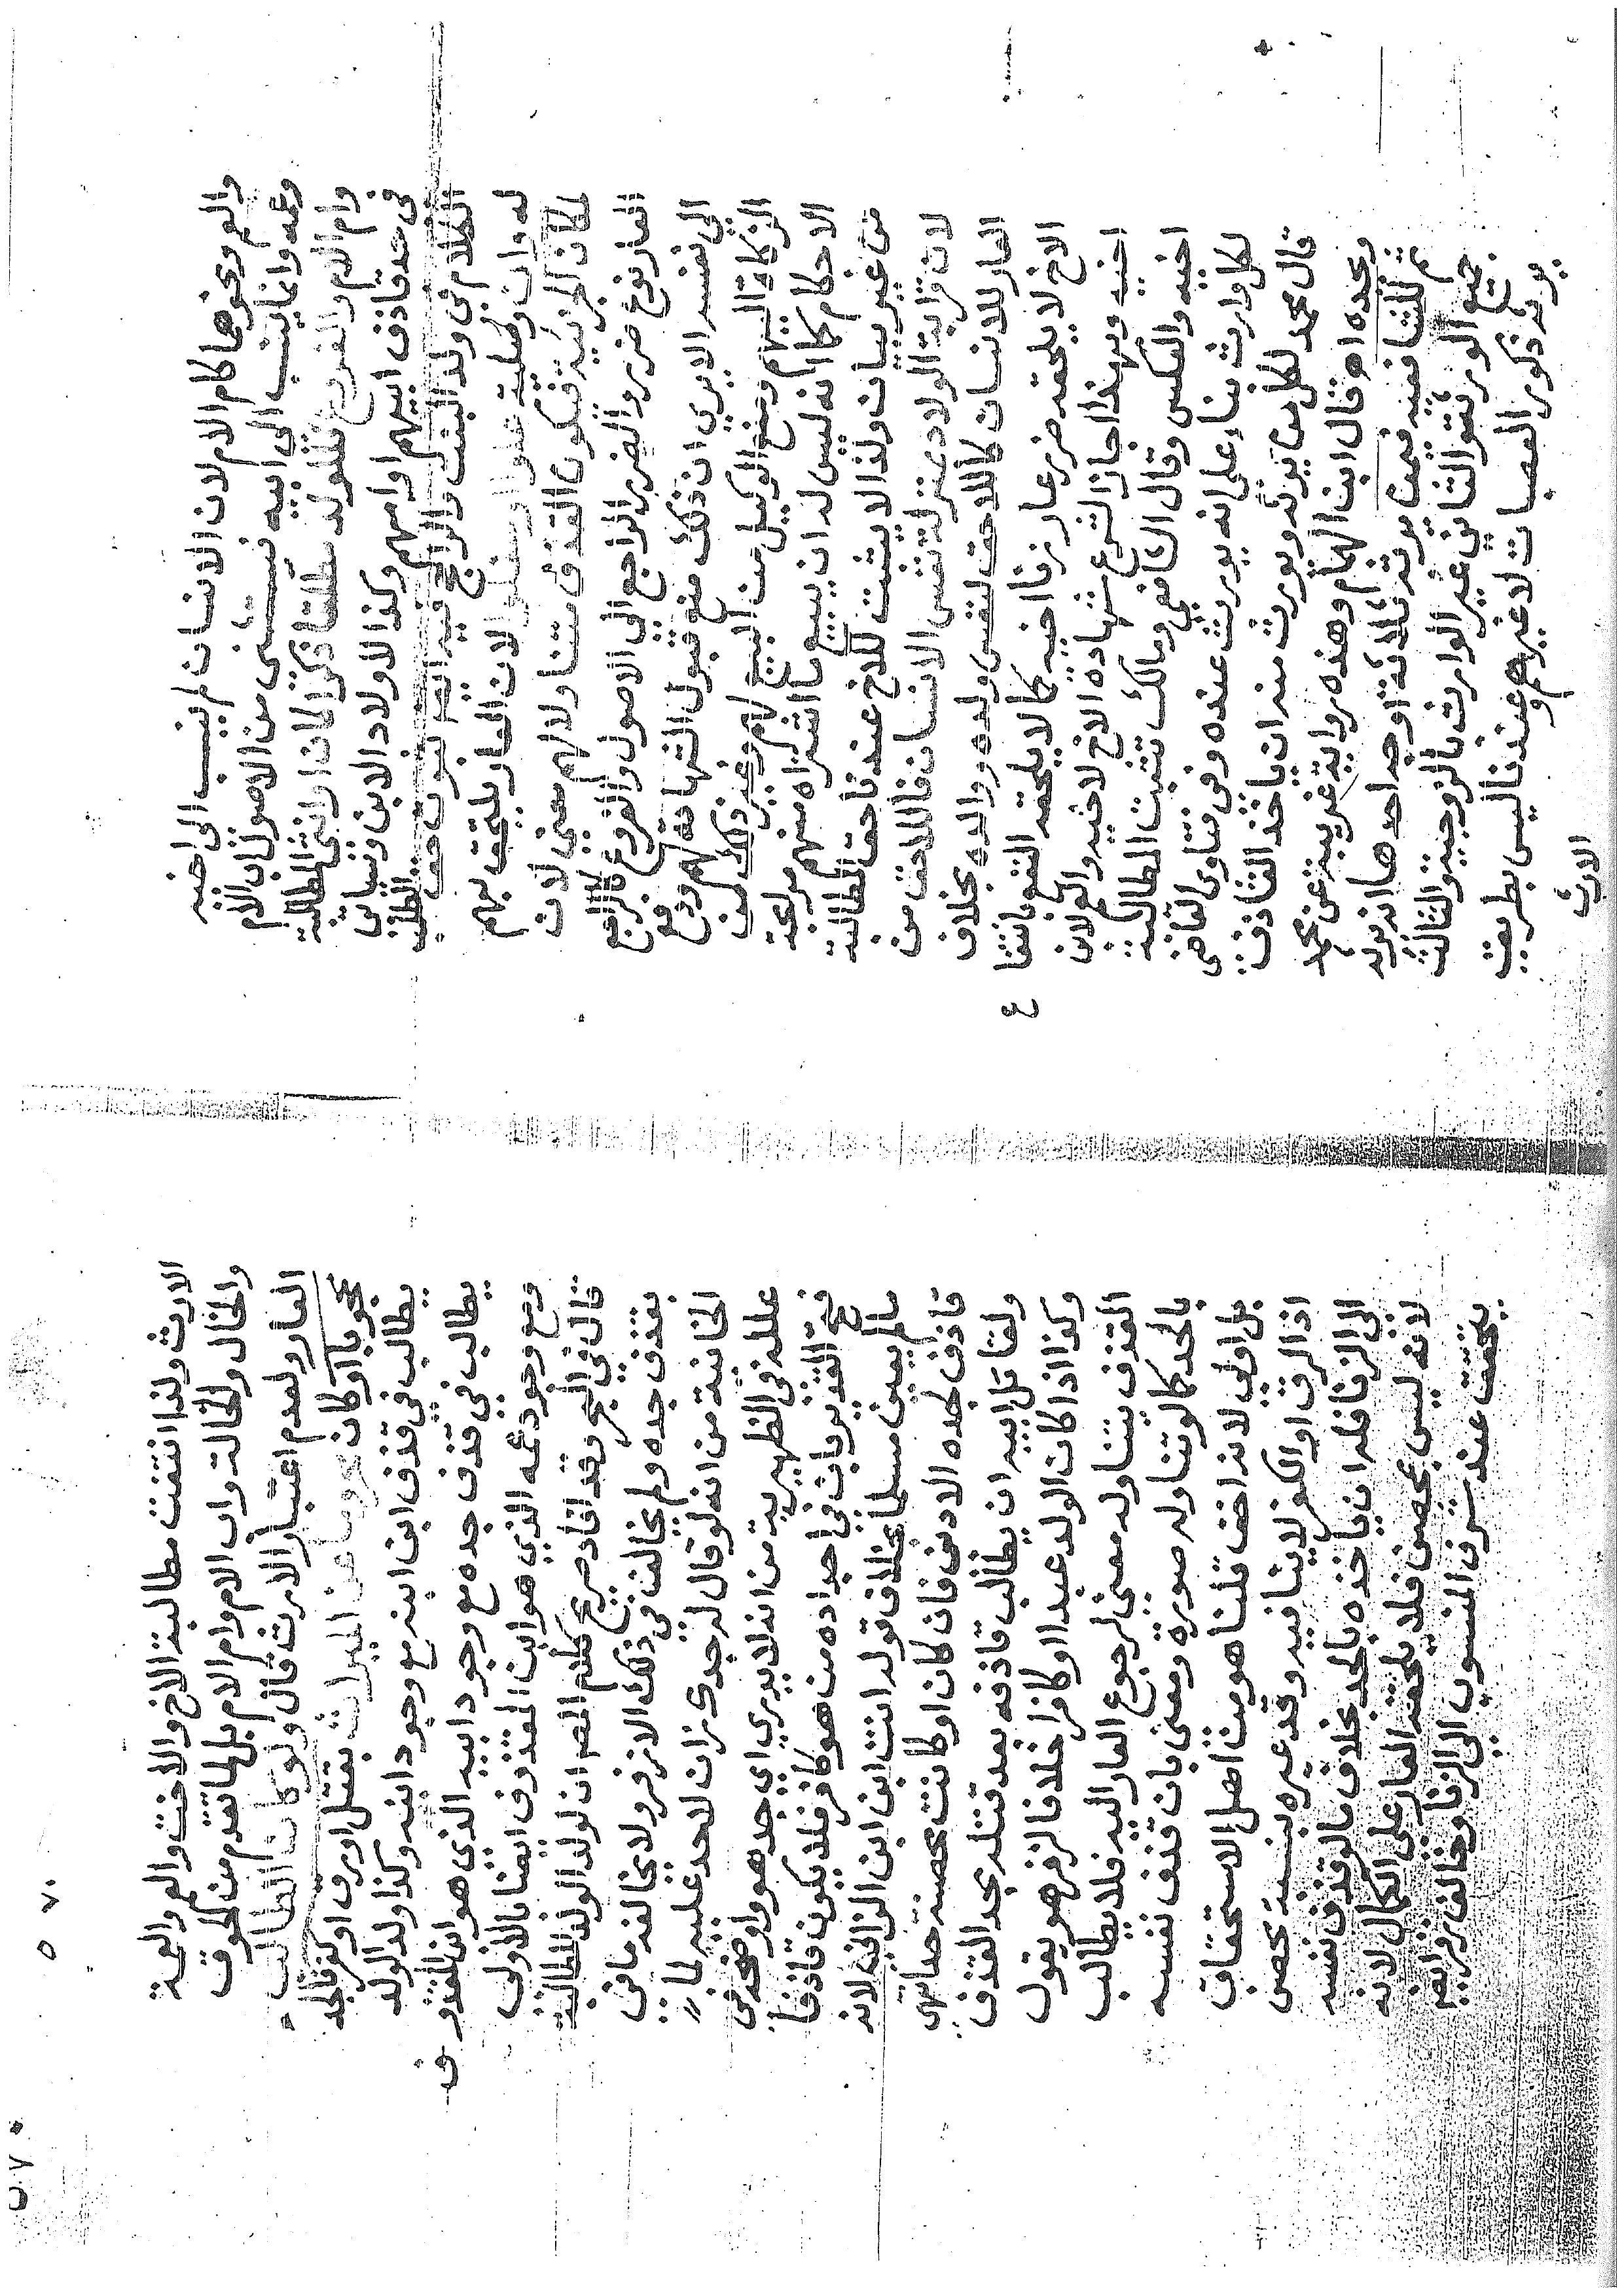 والعم ونحوهما كام الام لان الانسان لم ينسب الى اخيه
وعمه وانما ينسب الى ابيه فتستثنى من الاصول اب الام
وام الام والفروع للولد مطلقا ذكرا كان او انثى المطالبة
في حد قاذف ابيهم او امهم وكذا لاولاد الابن وتباين
الكلام في ولد البنت والراجح فيه انه ثبوت حق الطلب
له وان وصلية علوا او سفلوا لان العار يلتحق بهم
لمكان الجزئية فيكون القذف متناولا لهم معنى لان
العار نوع ضرر والضرر الراجع الى الاصول والفروع كالراجع
الى نفسه الا يرى ان ذلك منع قبول الشهادة لهم ودفع
الزكاة اليهم ومنع الوكيل من البيع لهم وغير ذلك من
الاحكام كما انه ليس له ان يبيع ما اشتراه منهم مرابحة
من غير بيان ولذا لا يثبت للاخ عندنا حق المطالبة
لان قرابة الولاد بمنزلة نفس الانسان فاللاحق من
العار للانسان كاللاحق لنفس ولده ووالده بخلاف
الاخ لا يلحقه ضرر عار زنا اخيه كما لا يلحقه النفع بانتفا
ع
اخيه وبهذا اجاز الشرع شهادة الاخ لاخيه والعم لابن
اخيه والعكس وقال الشافعي ومالك تثبت المطالبة
لكل وارث بناء على انه يورث عنده وفي فتاوى القاضي
قال محمد لكل من يرثه ويورث منه ان ياخذ القاذف
وبحده اه قال ابن الهمام وهذه رواية غريبة عن محمد
ثم للشافعية فيمن يرثه ثلاثة اوجه احدها انه يرثه
جميع الورثة والثاني غير الوارث بالزوجية والثالث
يرثه ذكور العصبات لا غيرهم وعندنا ليس بطريق
الارث
الارث ولذا انتفت مطالبة الاخ والاخت والعم والعمة
والخال والخالة واب الام وام الام بل لما تقدم من لحوق
العار ولعدم اعتبار الارث قال ولو كان الطالب
محجوبا او كان محروما عن الميراث بقتل او رق او كفر فالجد
يطالب في قذف ابن ابنه مع وجود ابنه وكذا ولد الولد
يطالب في قذف جده مع وجود ابيه الذي هو ابن المقذوف
ومع وجود عمه الذي هو ابن المقذوف ايضا بالاولى
قال في البحر وقد افاد صريح كلام المصـ ان لولد الولد المطالبة
بقذف جده ولم يخالف في ذلك الا زفر ولا يخالفه ما في
الخانية من انه لو قال له جدك زان لا حد عليه لما
علله في الظهيرية من انه لا يدرى اي جد هو واوضحه في
فتح القدير بان في اجداده من هو كافر فلا يكون قاذفا
ما لم يعين مسلما بخلاف قوله انت ابن ابن الزانية لانه
قاذف لجده الادنى فان كان او كانت محصنة حد انتهى
ولقاتل ابيه ان يطالب قاذفه بعد قتله بحد القذف
وكذا اذا كان الولد عبدا او كافرا خلافا لزفر هو يقول
القذف يتناوله معنى لرجوع العار اليه فلا يطالب
بالحد كما لو تناوله صورة ومعنى بان قذف نفسه
بل اولى لانه اخف قلنا هو من اهل الاستحقاق
اذ الرق او الكفر لا ينافيه وقد عيره بنسبته محصن
الى الزنا فله ان ياخذه بالحد بخلاف ما لو قذف نفسه
لانه ليس بمحصن فلا يلحقه العار على الكمال لانه
يتحقق عند شرف المنسوب الى الزنا وخالف زفر ايضا